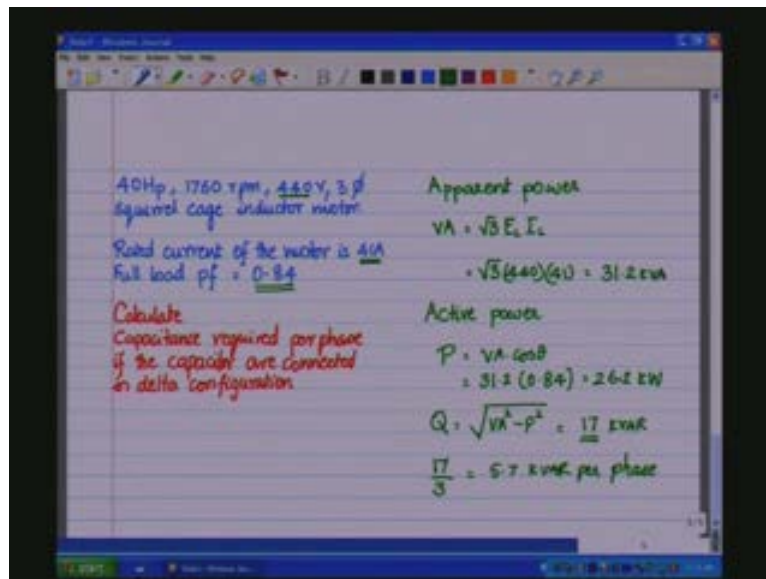 40Hp, 1760 rpm, 440V, 3 Ø
squirrel cage inductor motor
Rated current of the motor is 41A
Full load pf = 0.84
Calculate
Capacitance required per phase
if the capacitor are connected
in delta configuration
Apparent power
VA = √3 E_L I_L
= √3 (440)(41) = 31.2 KVA
Active power
P = VA cosθ
= 31.2 (0.84) = 26.2 KW
Q = √VA² - P² = 17 KVAR
17/3 = 5.7 KVAR per phase